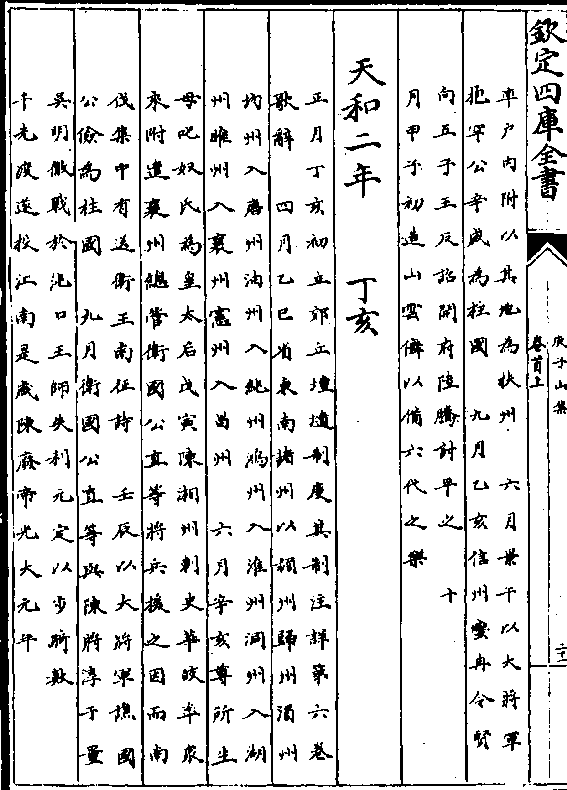 欽定四庫全書
庾子山集
卷首上
車戸内附以其地為扶州 六月景午以大將軍
抱罕公辛威為柱國 九月乙亥信州蠻冉令賢
向五子王反詔開府陸騰討平之 十
月甲子初造山雲儛以備六代之樂
天和二年 丁亥
正月丁亥初立郊丘壇壝制度其制注詳第六卷
歌辭 四月乙巳省東南諸州以潁州歸州溳州
均州入唐州油州入純州鴻州入淮州洞州入湖
州睢州入襄州憲州入昌州 六月辛亥尊所生
母叱奴氏為皇太后戊寅陳湘州刺史華皎率衆
來附遣襄州總管衛國公直等將兵援之因而南
伐集中有送衛王南征詩 壬辰以大將軍譙國
公儉為柱國 九月衛國公直等與陳將淳于量
吳明徹戰於沌口王師失利元定以步騎數
千先渡遂投江南是歲陳廢帝光大元年